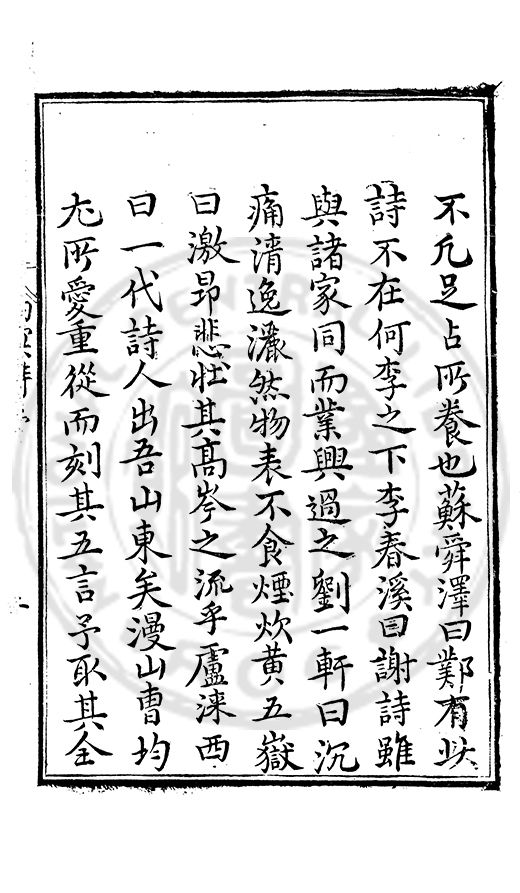 不凢足占所養也蘇舜澤曰鄴有此
詩不在何李之下李春溪曰謝詩雖
與諸家同而業興過之劉一軒曰沉
痛清逸灑然物表不食煙炊黄五嶽
曰激昻悲壯其髙岑之流乎盧淶西
曰一代詩人出吾山東矣漫山曹均
尤所愛重從而刻其五言予取其全